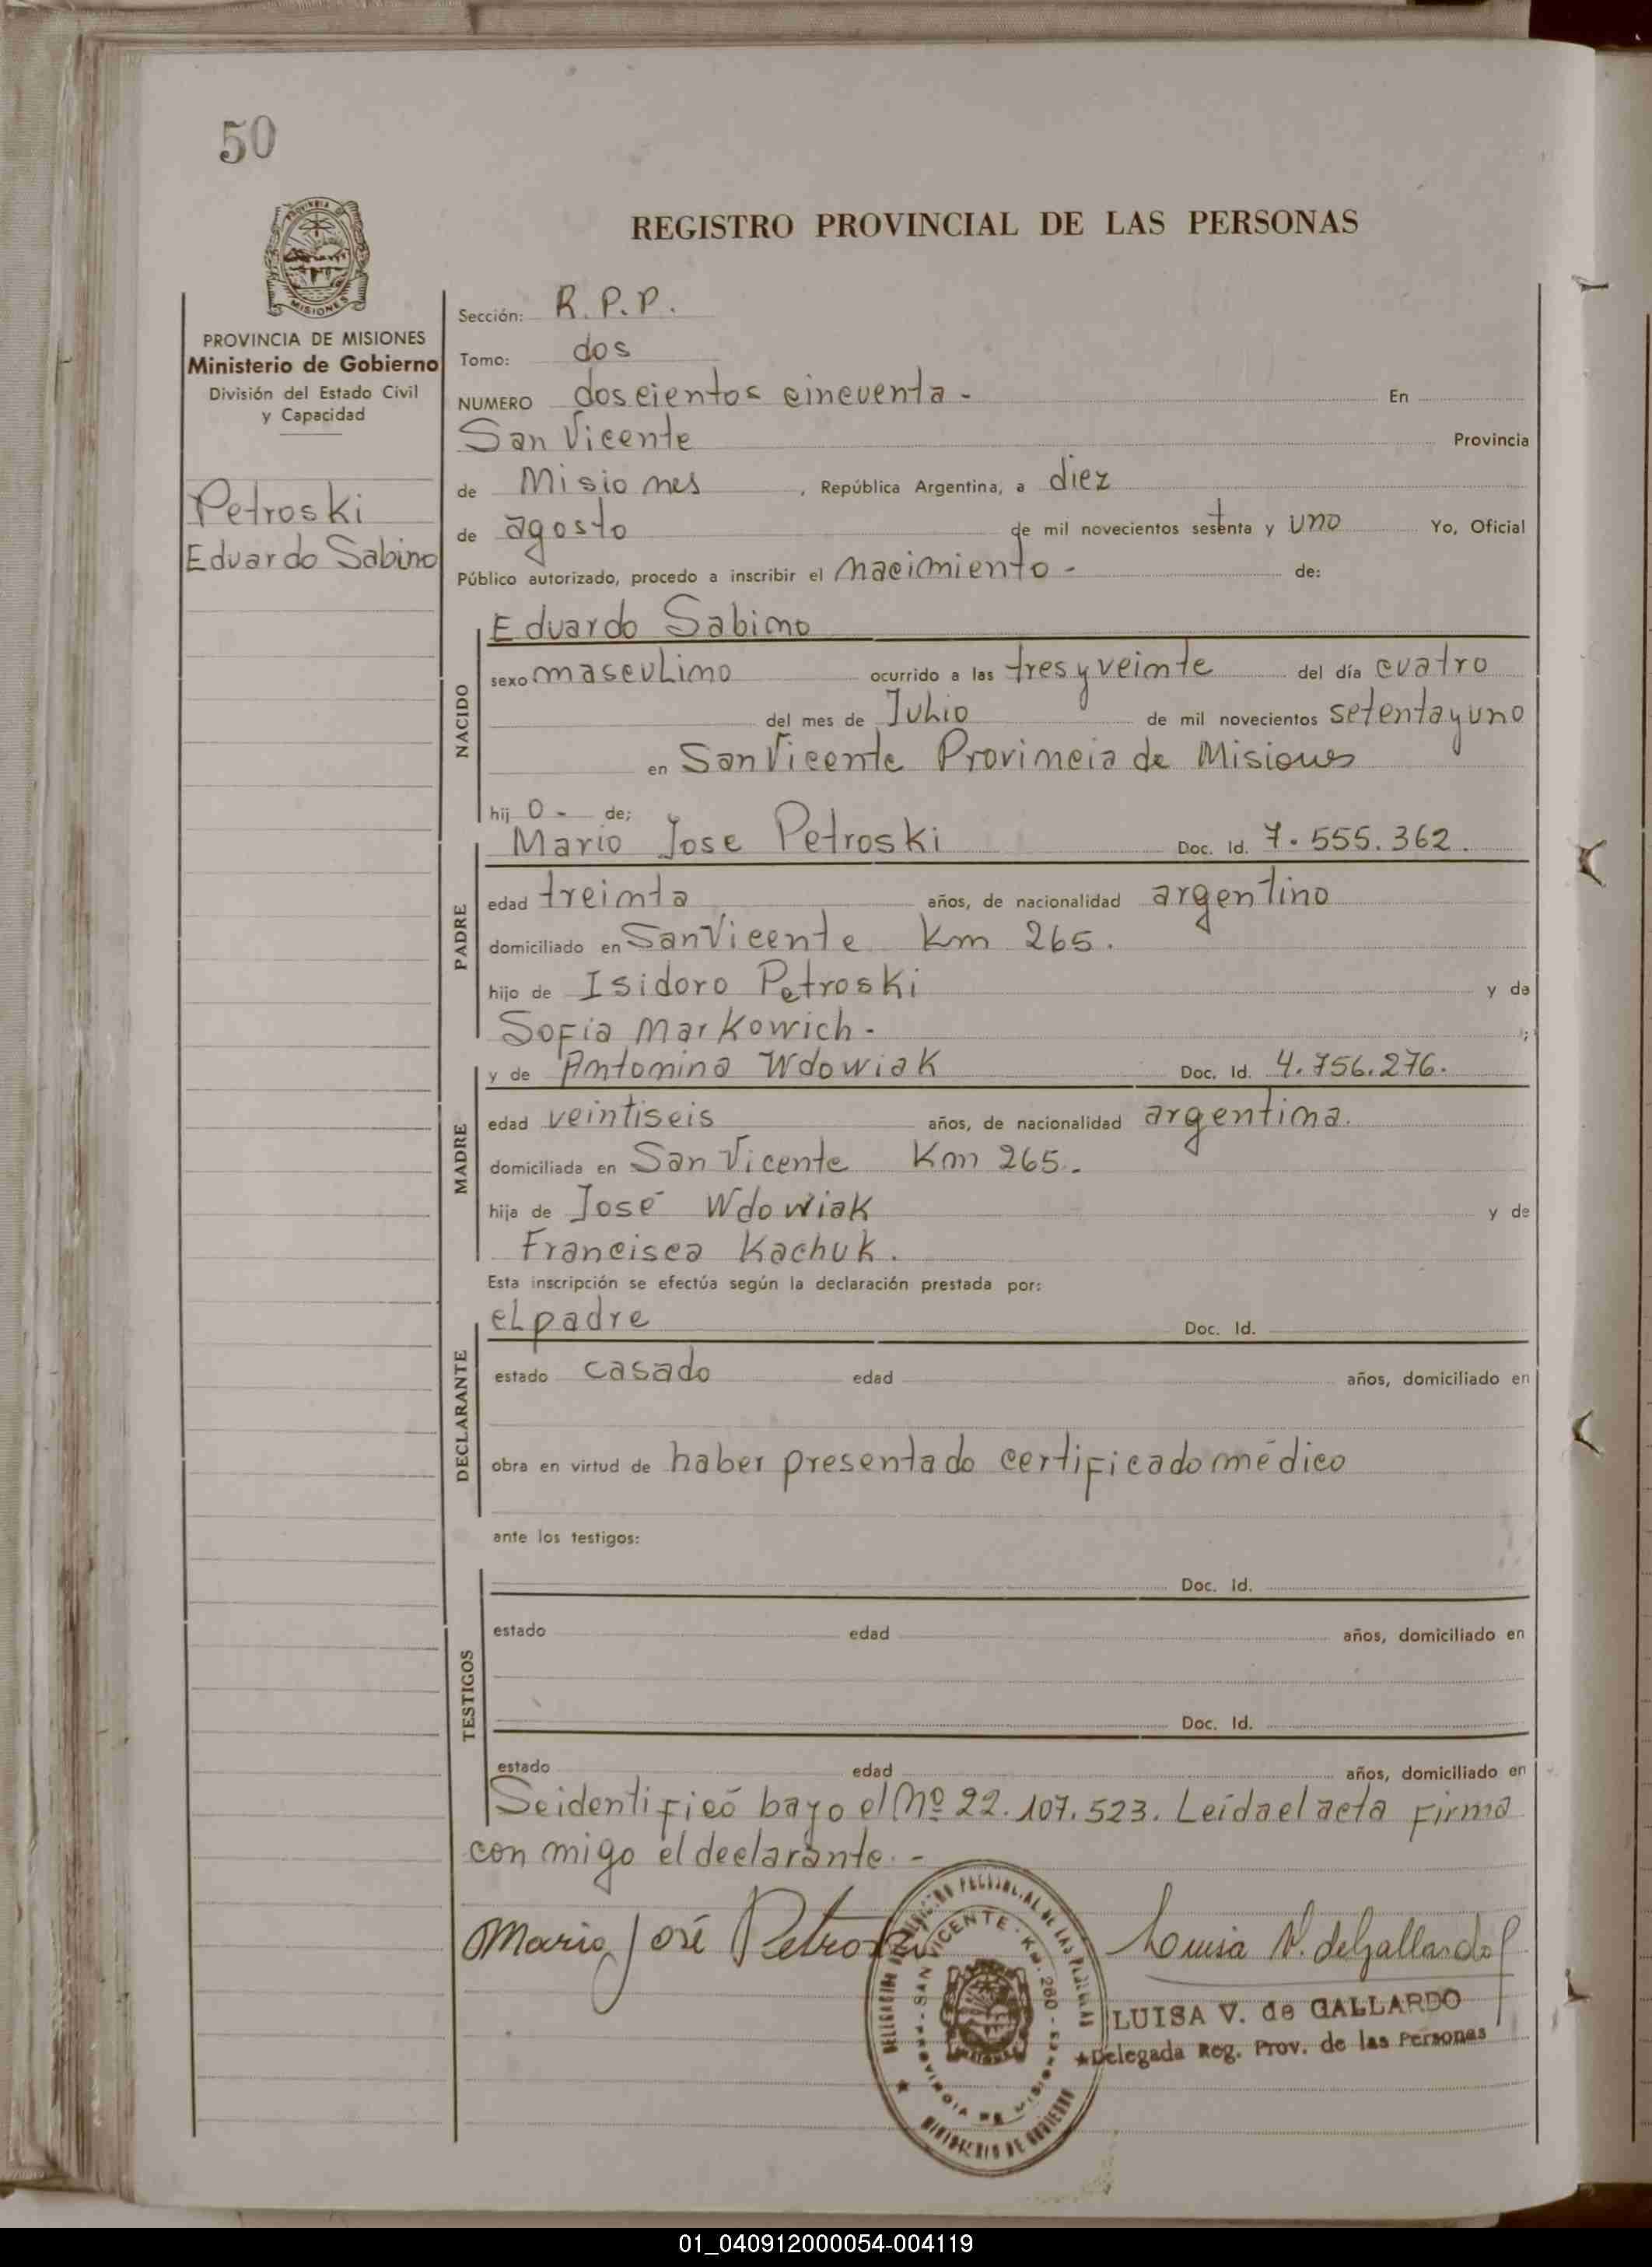 50
REGISTRO PROVINCIAL DE LAS PERSONAS
PROVINCIA DE MISIONES
Ministerio de Gobierno
División del Estado Civil
y Capacidad
Petroski
Eduardo Sabino
Sección: R.P.P.
Tomo: dos
NUMERO doscientos cincuenta - En
San Vicente Provincia
de Misiones, República Argentina, a diez
de agosto de mil novecientos setenta y uno Yo, Oficial
Público autorizado, procedo a inscribir el nacimiento - de:
NACIDO
Eduardo Sabino
sexo masculino ocurrido a las tres y veinte del día cuatro
del mes de Julio de mil novecientos setenta y uno
en San Vicente Provincia de Misiones
hij o - de;
PADRE
Mario Jose Petroski Doc. Id. 7.555.362.
edad treinta años, de nacionalidad argentino
domiciliado en San Vicente Km 265.
hijo de Isidoro Petroski y de
Sofia Markowich. ;
MADRE
y de Antonina Wdowiak Doc. Id. 4.756.276.
edad veintiseis años, de nacionalidad argentina.
domiciliada en San Vicente Km 265.
hija de José Wdowiak y de
Francisca Kachuk.
Esta inscripción se efectúa según la declaración prestada por:
DECLARANTE
el padre Doc. Id.
estado casado edad años, domiciliado en
obra en virtud de haber presentado certificado médico
ante los testigos:
TESTIGOS
Doc. Id.
estado edad años, domiciliado en
Doc. Id.
estado edad años, domiciliado en
Se identificó bayo el Nº 22.107.523. Leida el acta firma
con migo el declarante. -
Mario José Petroski Luisa V. de Gallardo
DELEGACION REGISTRO PROVINCIAL DE LAS PERSONAS
SAN VICENTE - KM. 260 - PROVINCIA DE MISIONES
MINISTERIO DE GOBIERNO
LUISA V. de GALLARDO
Delegada Reg. Prov. de las Personas
01_040912000054-004119